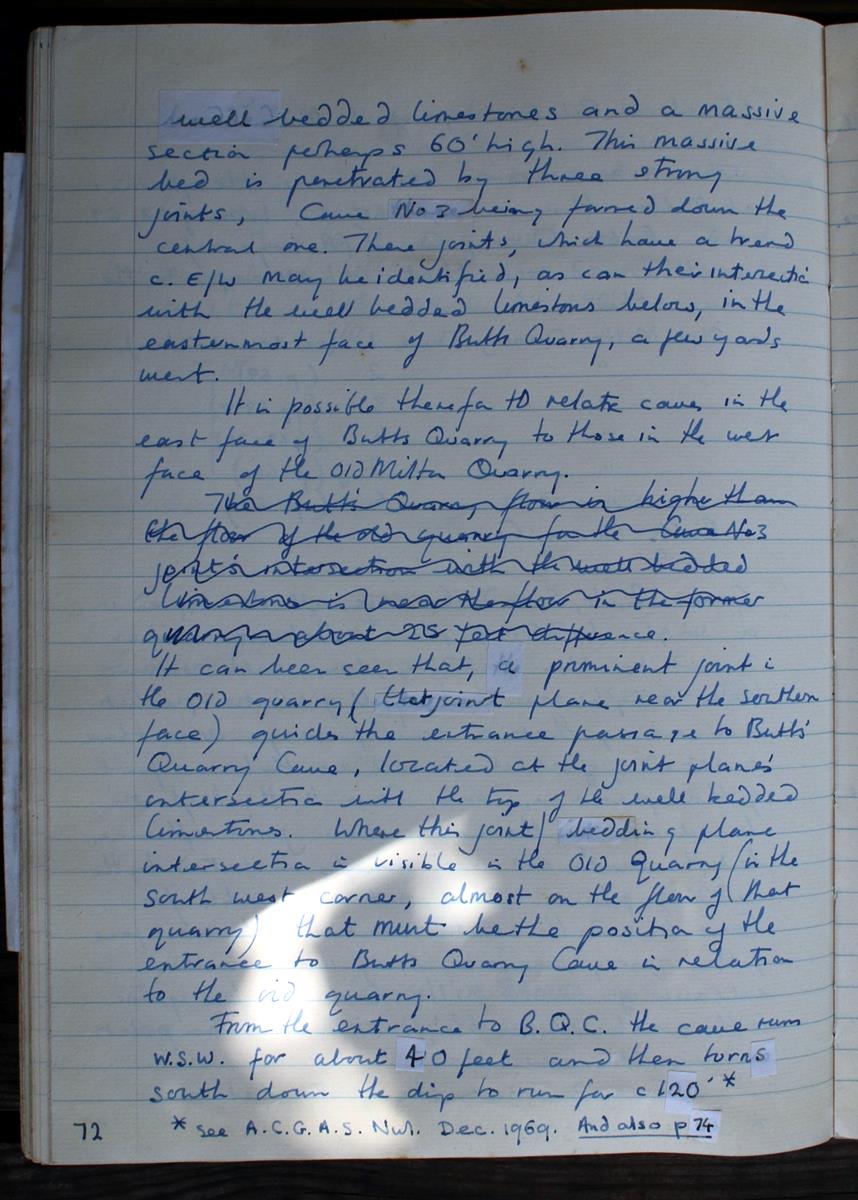 well bedded limestones and a massive
section perhaps 60' high. This massive
bed is penetrated by three strong
joints, Cave No 3 being formed down the
central one. These joints, which have a trend
c. E/W may be identified, as can their intersectio
with the well bedded limestones below, in the
easternmost face of Butts Quarry, a few yards
west.
It is possible therefor to relate caves in the
east face of Butts Quarry to those in the west
face of the Old Milton Quarry.
The Butts Quarry floor is higher than
the floor of the old quarry for the Cave No 3
joint's intersection with the well bedded
limestones is near the floor in the former
quarry ~ about 25 feet difference.
It can been seen that, a prominent joint i
the Old quarry (that joint plane near the southern
face) guides the entrance passage to Butts'
Quarry Cave, located at the joint planes'
intersection with the top of the well bedded
limestones. Where this joint/bedding plane
intersection is visible in the Old Quarry (in the
south west corner, almost on the floor of that
quarry) that must be the position of the
entrance to Butts Quarry Cave in relation
to the old quarry.
From the entrance to B.Q.C. the cave runs
W.S.W. for about 40 feet and then turns
south down the dip to run for c 120' *
72 * see A.C.G.A.S. Nwl. Dec. 1969. And also p 74